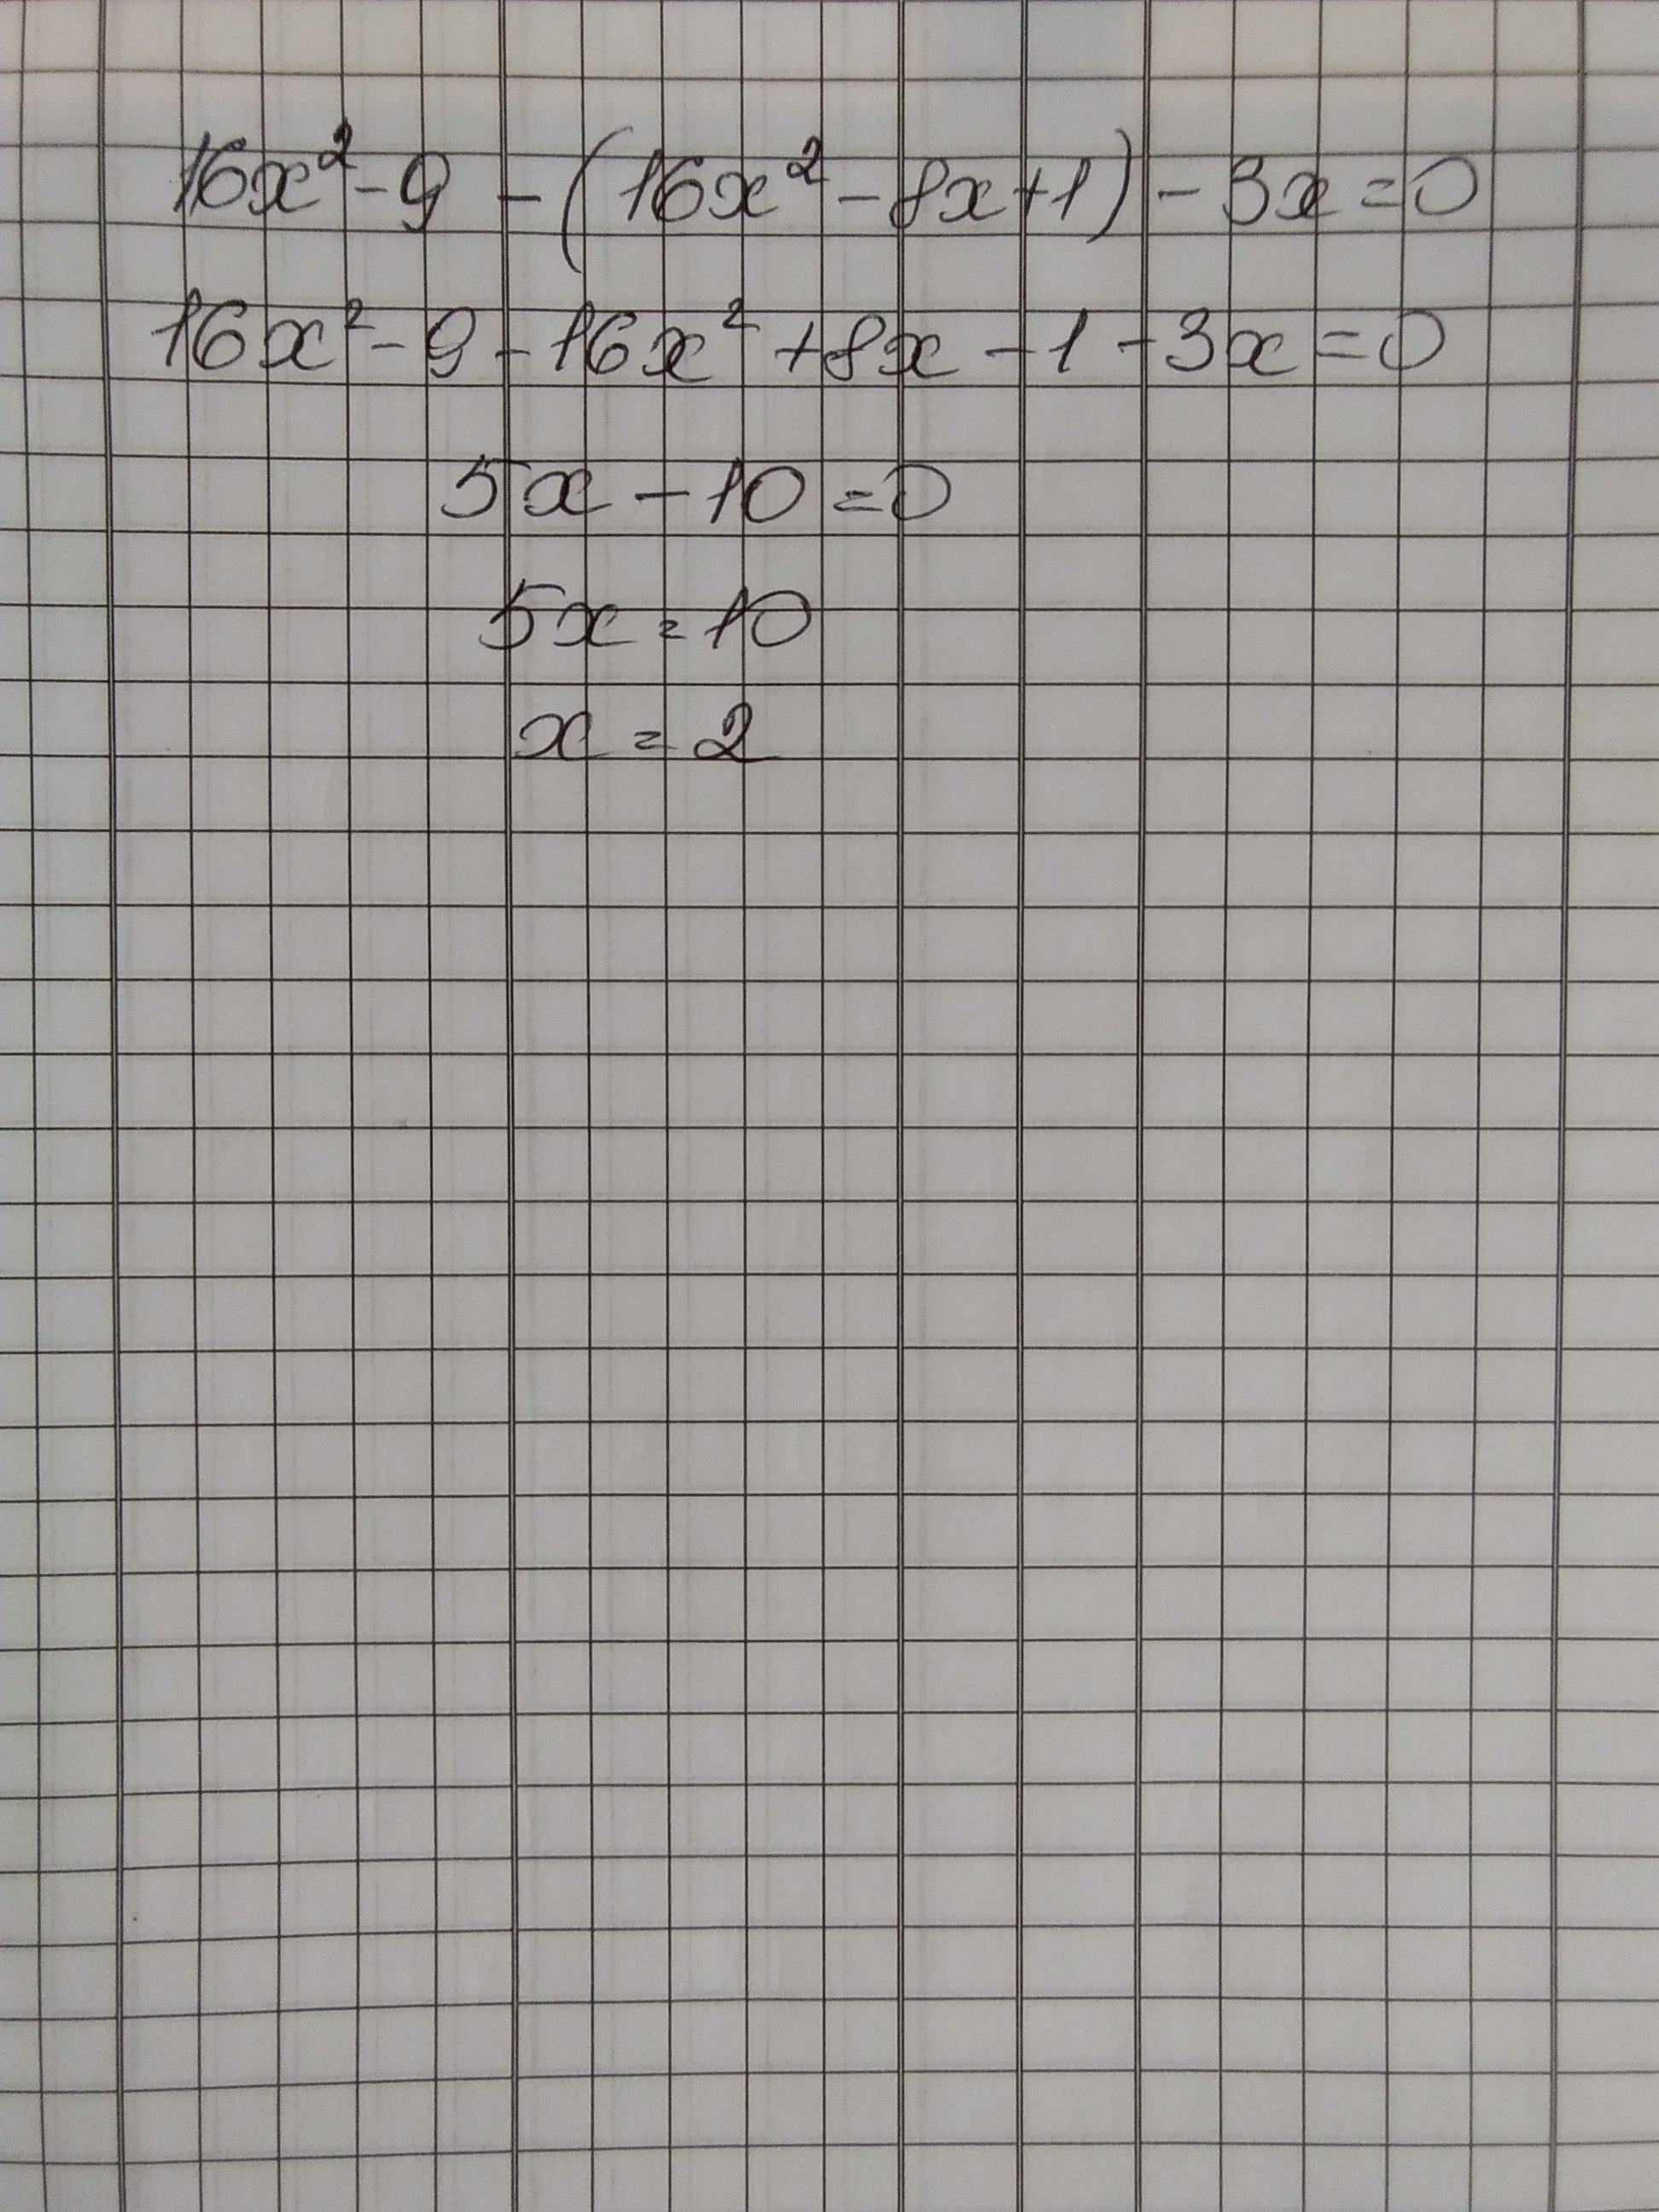 16x² - 9 - (16x² - 8x + 1) - 3x = 0
16x² - 9 - 16x² + 8x - 1 - 3x = 0
5x - 10 = 0
5x = 10
x = 2